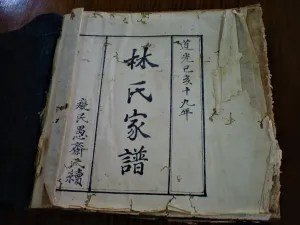 道光己亥十九年
林氏家譜
愚齋氏續